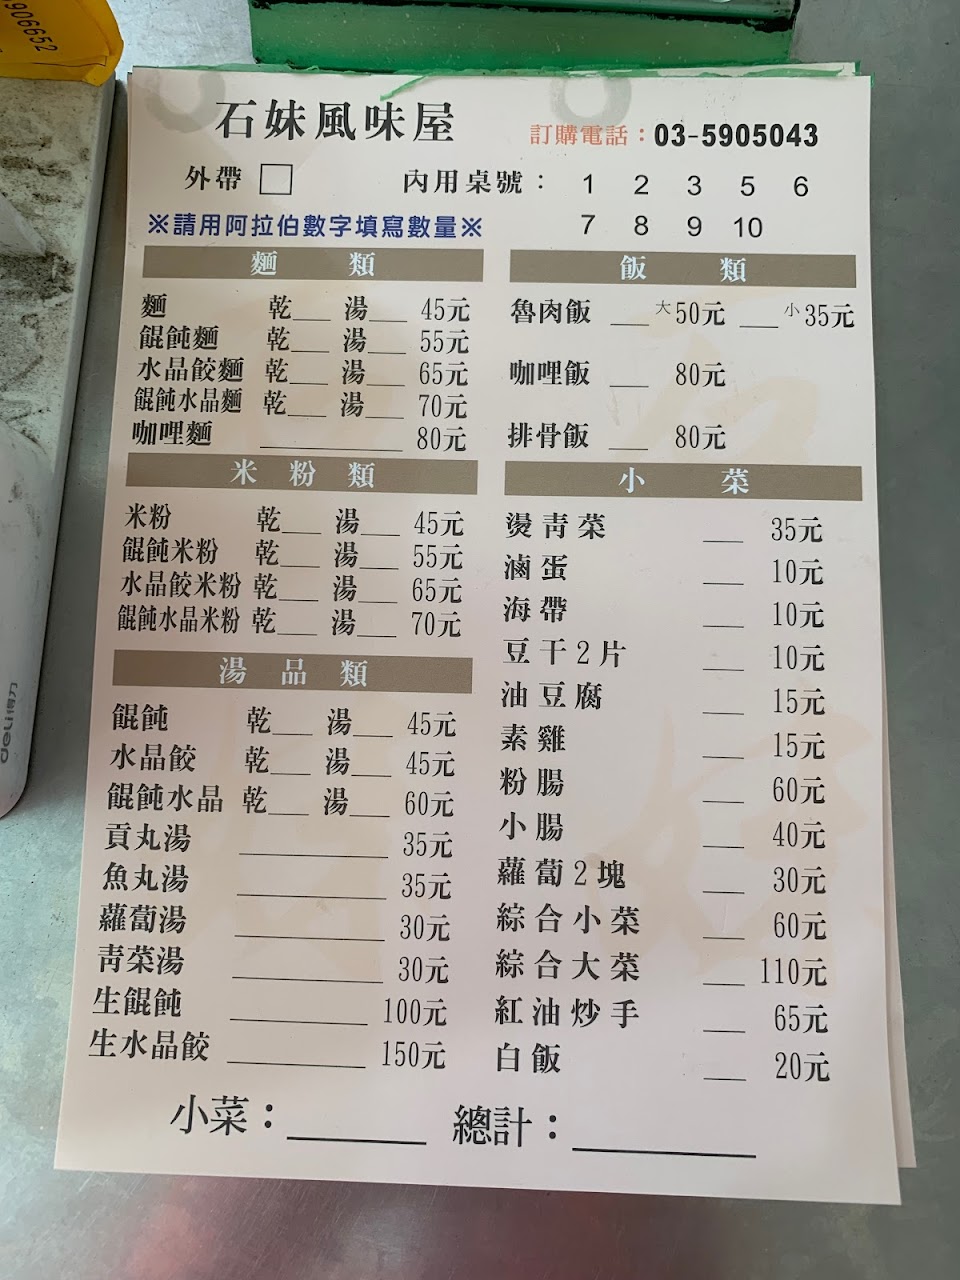 906652
deli得力
石妹風味屋
訂購電話：03-5905043
外帶 □ 內用桌號： 1 2 3 5 6
7 8 9 10
※請用阿拉伯數字填寫數量※
麵 類
麵 乾___ 湯___ 45元
餛飩麵 乾___ 湯___ 55元
水晶餃麵 乾___ 湯___ 65元
餛飩水晶麵 乾___ 湯___ 70元
咖哩麵 ___ 80元
米 粉 類
米粉 乾___ 湯___ 45元
餛飩米粉 乾___ 湯___ 55元
水晶餃米粉 乾___ 湯___ 65元
餛飩水晶米粉 乾___ 湯___ 70元
湯 品 類
餛飩 乾___ 湯___ 45元
水晶餃 乾___ 湯___ 45元
餛飩水晶 乾___ 湯___ 60元
貢丸湯 ___ 35元
魚丸湯 ___ 35元
蘿蔔湯 ___ 30元
靑菜湯 ___ 30元
生餛飩 ___ 100元
生水晶餃 ___ 150元
飯 類
魯肉飯 ___ 大50元 ___ 小35元
咖哩飯 ___ 80元
排骨飯 ___ 80元
小 菜
燙靑菜 ___ 35元
滷蛋 ___ 10元
海帶 ___ 10元
豆干2片 ___ 10元
油豆腐 ___ 15元
素雞 ___ 15元
粉腸 ___ 60元
小腸 ___ 40元
蘿蔔2塊 ___ 30元
綜合小菜 ___ 60元
綜合大菜 ___ 110元
紅油炒手 ___ 65元
白飯 ___ 20元
小菜：___ 總計：___